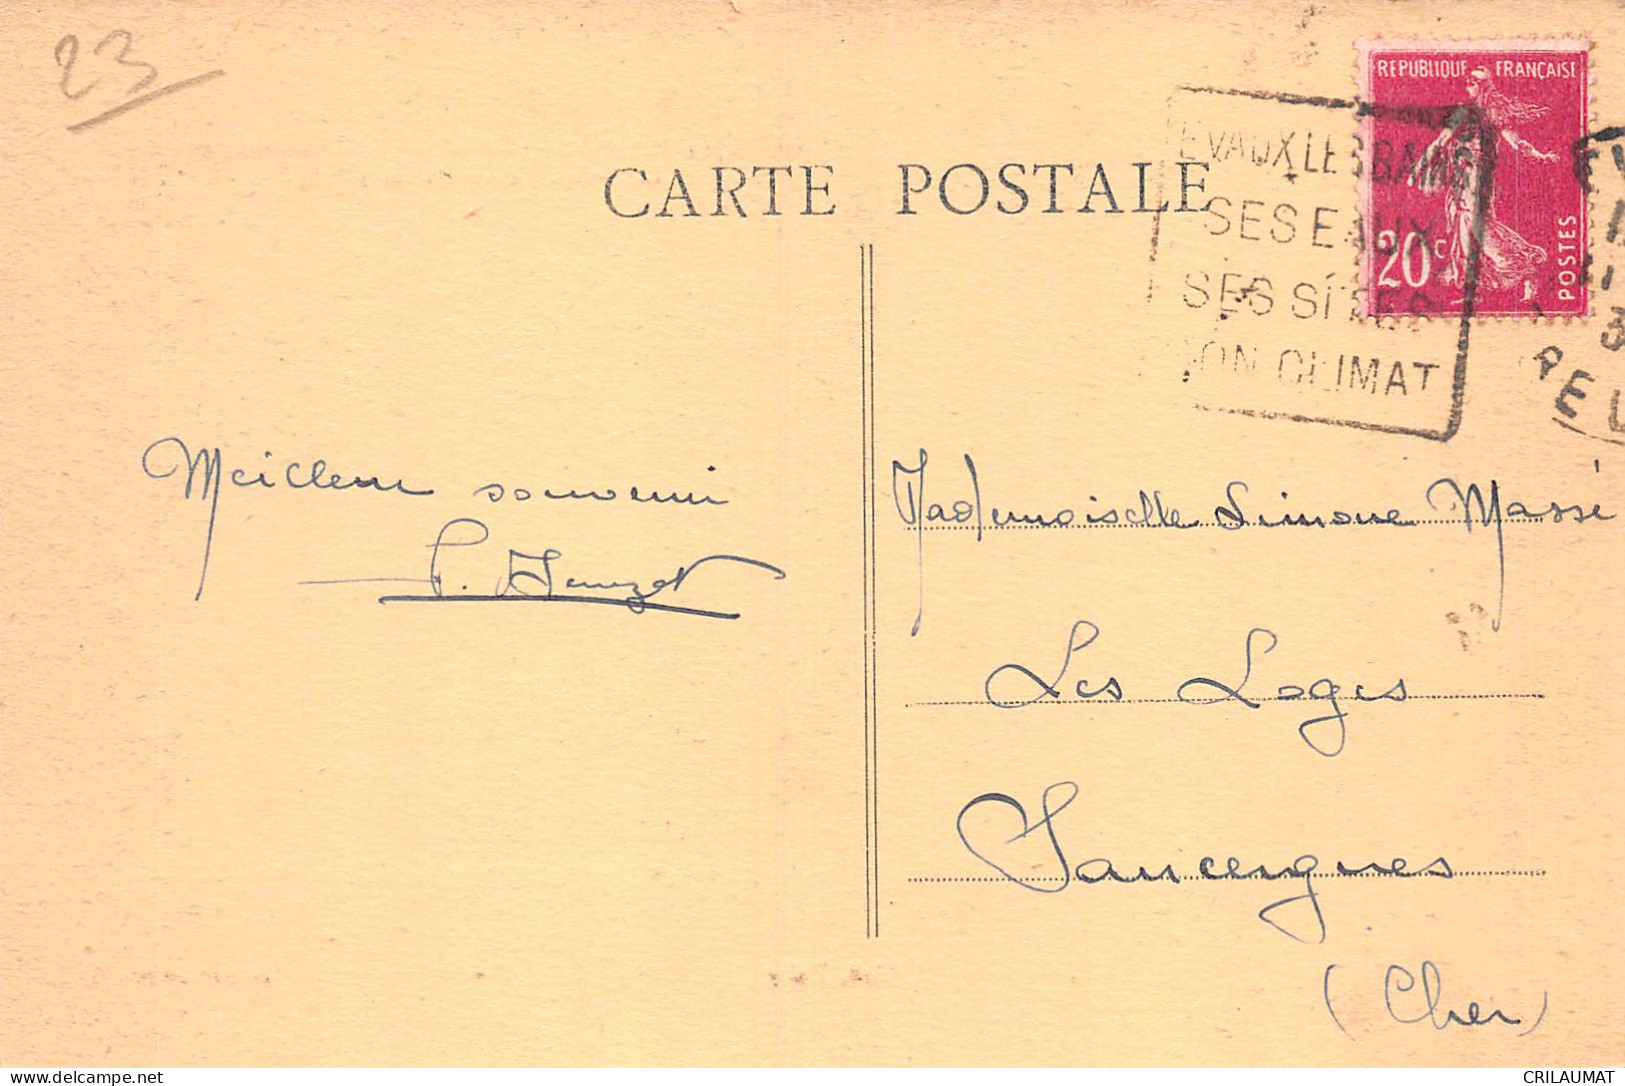 23
REPUBLIQUE FRANÇAISE
20c
POSTES
EVAUX LES BAINS
SES EAUX
SES SITES
SON CLIMAT
CARTE POSTALE
Meilleur souvenir
Mademoiselle Simone Massé
Les Loges
Sancergues
(Cher)
CRILAUMAT